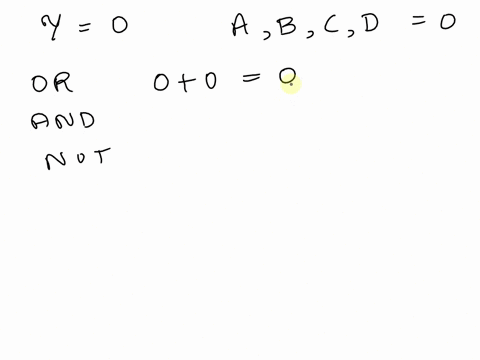 Y = 0 A, B, C, D = 0
OR 0 + 0 = 0
AND
NOT